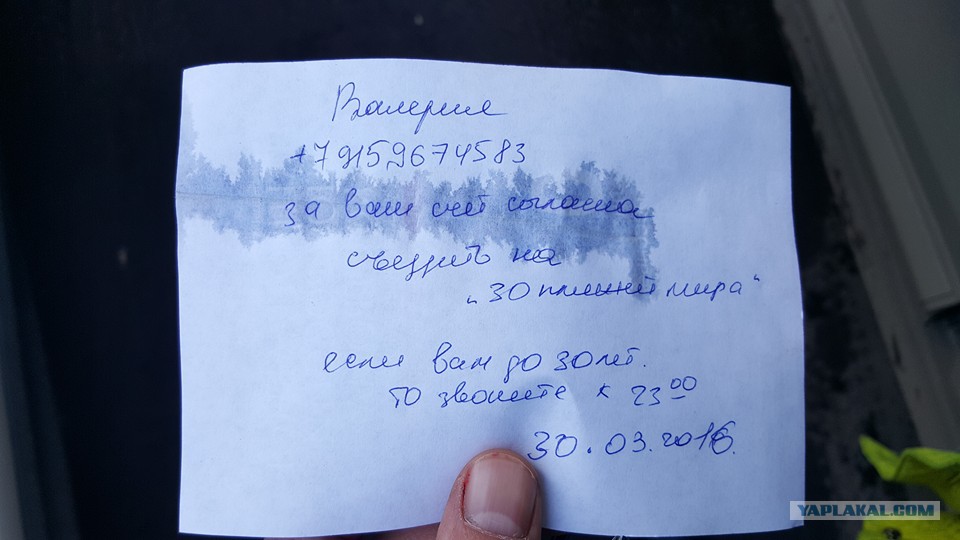 Валерия
+79159674583
за ваш счет согласна
съездить на
„30 пляжей мира“
если вам до 30 лет.
то звоните к 23⁰⁰
30.03.2016.
YAPLAKAL.COM